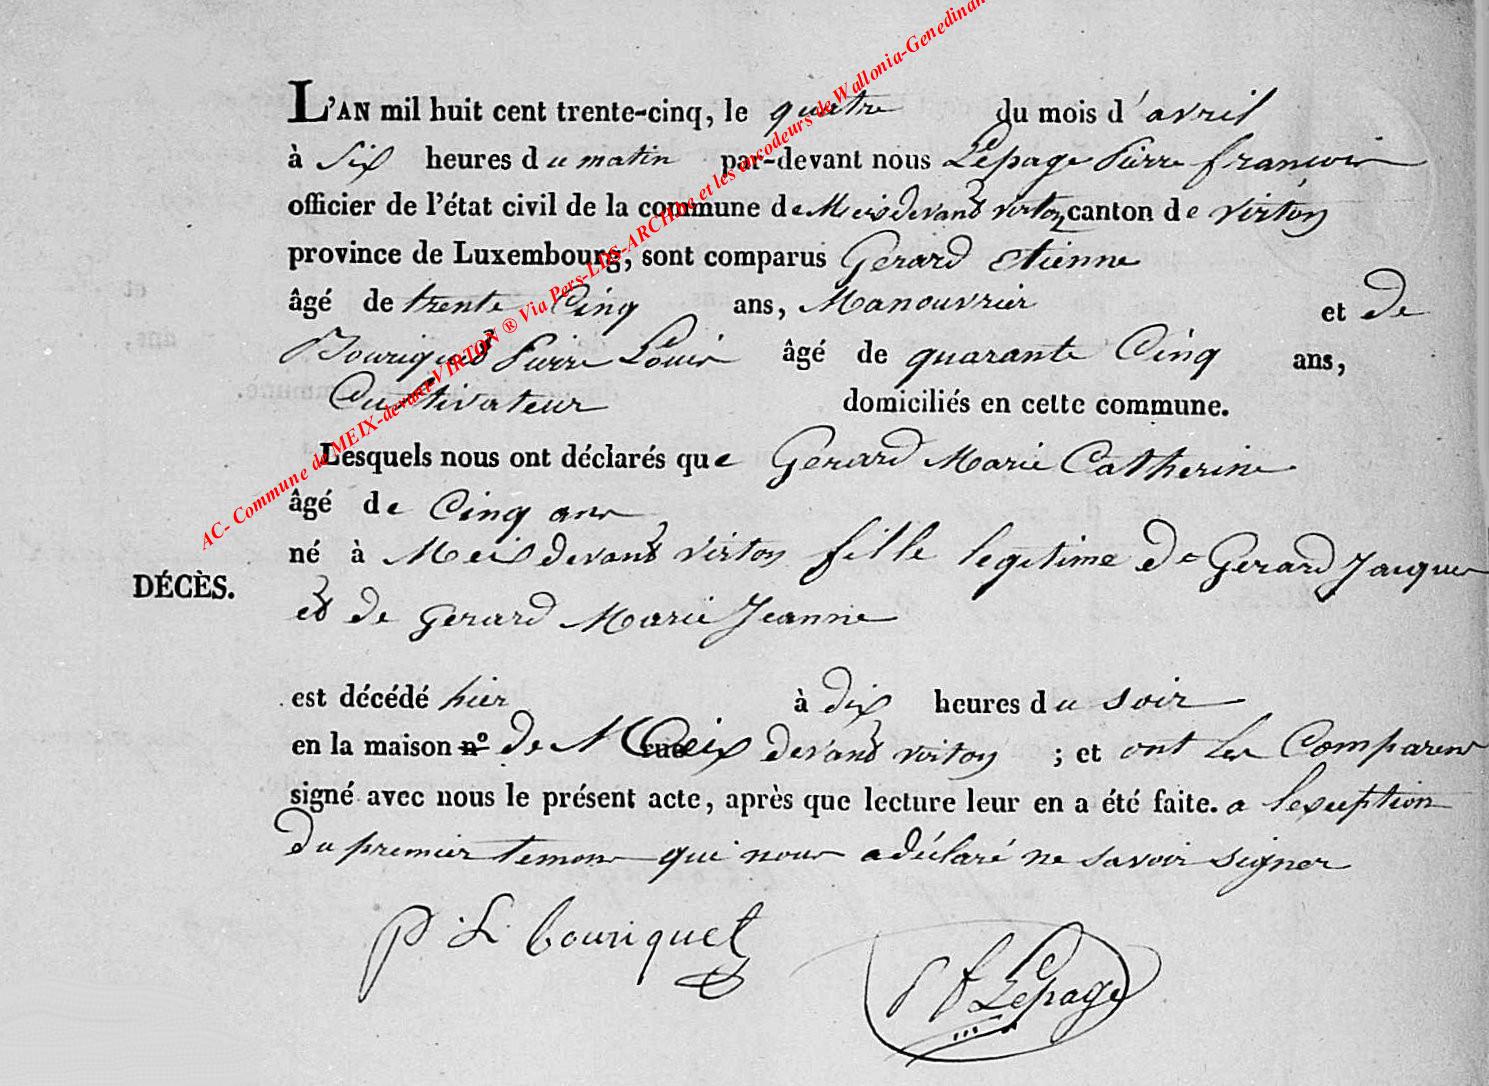 L'AN mil huit cent trente-cinq, le quatre du mois d'avril
à Six heures du matin par-devant nous Lepage Pierre françois
officier de l'état civil de la commune de Meix devant virton canton de virton
province de Luxembourg, sont comparus Gerard etienne
âgé de trente Cinq ans, Manouvrier et de
Bouriquet Pierre Louis âgé de quarante Cinq ans,
Cultivateur domiciliés en cette commune.
Lesquels nous ont déclarés que Gerard Marie Catherine
âgé de Cinq ans
né à Meix devant virton fille legitime de Gerard Jacques
DÉCÈS.
et de gerard Marie Jeanne
est décédé hier à dix heures du soir
en la maison nº de Meix rue devant virton ; et ont les Comparens
signé avec nous le présent acte, après que lecture leur en a été faite. a lexception
du premier temoin qui nous a déclaré ne savoir signer
P. L. bouriquet
P f Lepage
AC- Commune de MEIX-devant-VIRTON ® Via Pers-LDS-ARCHne et les encodeurs de Wallonia-Genedinan